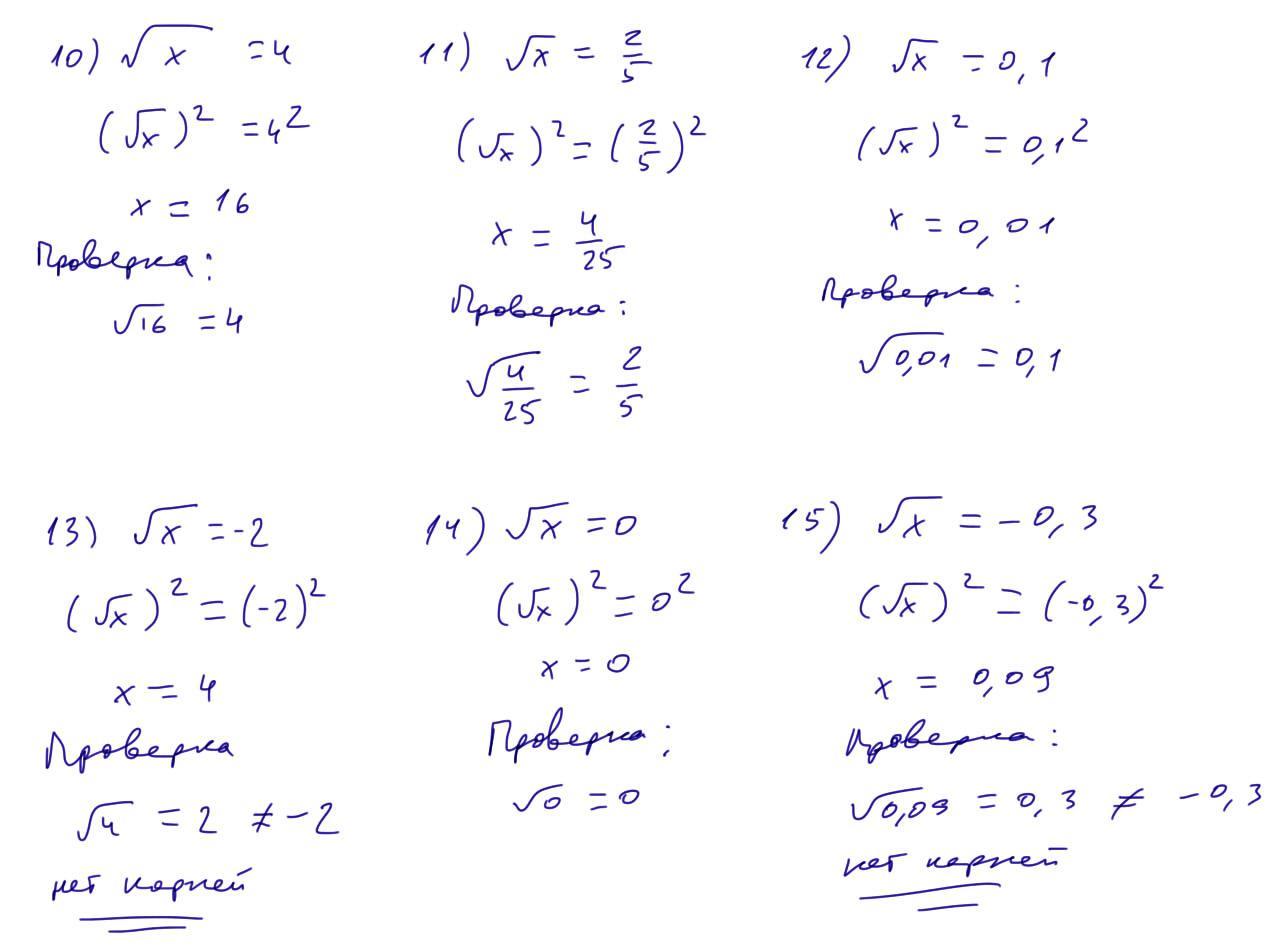 10) √x = 4
(√x)² = 4²
x = 16
Проверка:
√16 = 4
11) √x = 2/5
(√x)² = (2/5)²
x = 4/25
Проверка:
√(4/25) = 2/5
12) √x = 0,1
(√x)² = 0,1²
x = 0,01
Проверка:
√0,01 = 0,1
13) √x = -2
(√x)² = (-2)²
x = 4
Проверка
√4 = 2 ≠ -2
нет корней
14) √x = 0
(√x)² = 0²
x = 0
Проверка:
√0 = 0
15) √x = -0,3
(√x)² = (-0,3)²
x = 0,09
Проверка:
√0,09 = 0,3 ≠ -0,3
нет корней